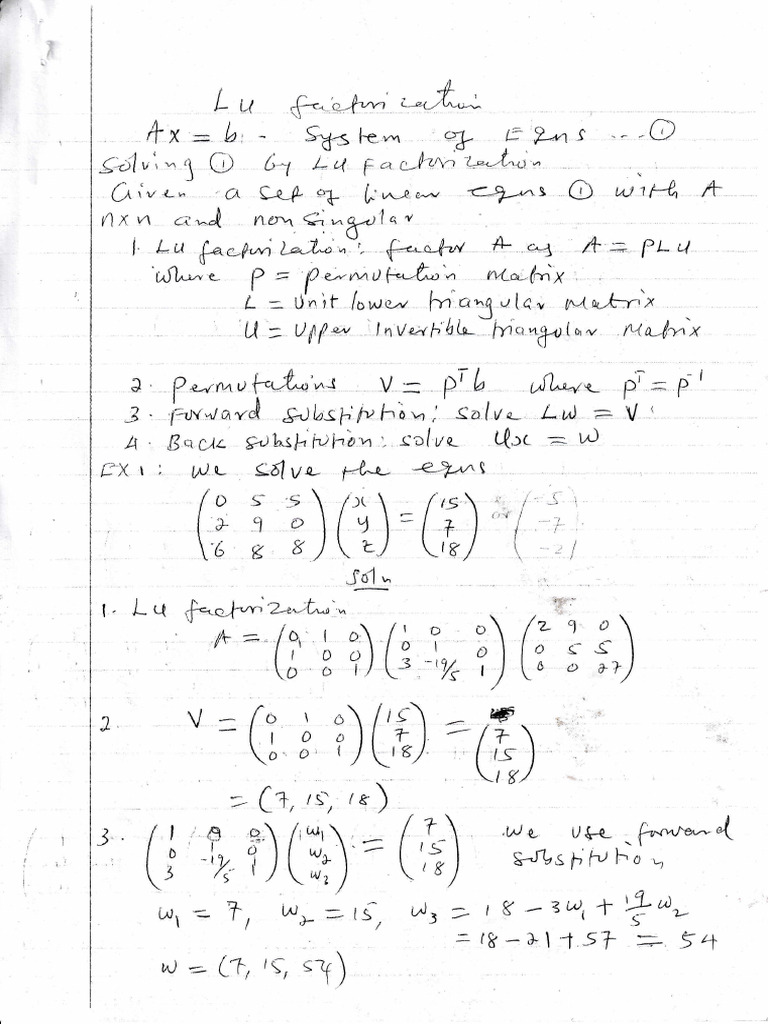 LU factorization
Ax = b - System of Eqns ... ①
Solving ① by LU Factorization
Given a set of linear eqns ① with A
n×n and non singular
1. LU factorization: factor A as A = PLU
where P = permutation matrix
L = unit lower triangular matrix
U = Upper Invertible triangular Matrix
2. Permutations V = Pᵀb where Pᵀ = P⁻¹
3. Forward substitution; solve Lw = V
4. Back substitution: solve Ux = w
EX1: We solve the eqns
(0 5 5; 2 9 0; 6 8 8) (x; y; z) = (15; 7; 18) or (-5; -7; -21)
Soln
1. LU factorization
A = (0 1 0; 1 0 0; 0 0 1) (1 0 0; 0 1 0; 3 -19/5 1) (2 9 0; 0 5 5; 0 0 27)
2 V = (0 1 0; 1 0 0; 0 0 1) (15; 7; 18) = (7; 15; 18)
= (7, 15, 18)
3. (1 0 0; 0 1 0; 3 -19/5 1) (w₁; w₂; w₃) = (7; 15; 18) We use forward
substitution
w₁ = 7, w₂ = 15, w₃ = 18 - 3w₁ + 19/5 w₂
= 18 - 21 + 57 = 54
w = (7, 15, 54)